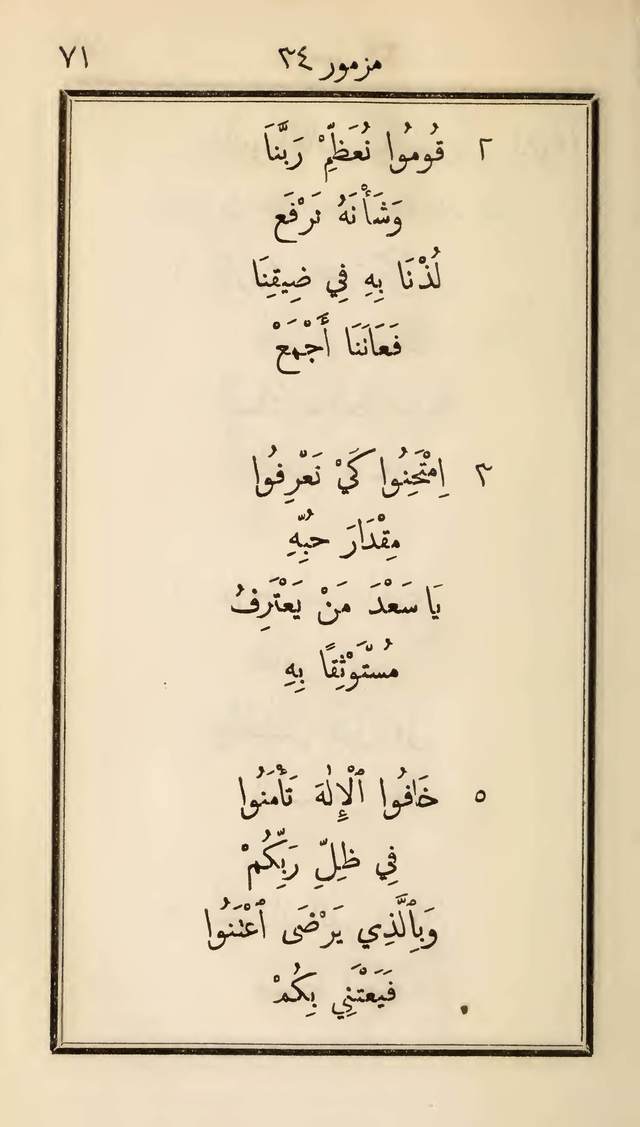 مزمور ٣٤ ٧١
٢ قُومُوا نُعَظِّمْ رَبَّنَا
وَشَأْنَهُ نَرْفَع
لُذْنَا بِهِ فِي ضِيقِنَا
فَعَانَنَا أَجْمَعْ
٣ اِمْتَحِنُوا كَيْ تَعْرِفُوا
مِقْدَارَ حُبِّهِ
يَا سَعْدَ مَنْ يَعْتَرِفُ
مُسْتَوْثِقًا بِهِ
٥ خَافُوا ٱلْإِلٰهَ تَأْمَنُوا
فِي ظِلِّ رَبِّكُمْ
وَبِٱلَّذِي يَرْضَى ٱعْتَنُوا
فَيَعْتَنِي بِكُمْ